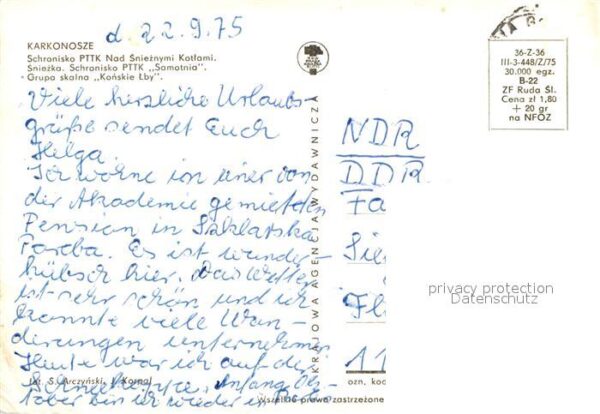 d. 22.9.75
KARKONOSZE
Schronisko PTTK Nad Śnieżnymi Kotłami.
Śnieżka. Schronisko PTTK „Samotnia".
Grupa skalna „Końskie Łby".
Viele herzliche Urlaubs-
grüße sendet Euch
Helga.
Ich wohne in einer von
der Akademie gemieteten
Pension in Szklarska
Poręba. Es ist wunder-
hübsch hier. Das Wetter
ist sehr schön und ich
konnte viele Wan-
derungen unternehmen.
Heute war ich auf der
Schneekoppe. Anfang Ok-
tober bin ich wieder in
fot. S. Arczyński, J. Korpal
KRAJOWA AGENCJA WYDAWNICZA
36-Z-36
III-3-448/Z/75
30.000 egz.
B-22
ZF Ruda Śl.
Cena zł 1,80
+ 20 gr
na NFOZ
NDR
DDR
Fa
Sie
Fl
11
ozn. kod
Wszelkie prawa zastrzeżone
privacy protection
Datenschutz